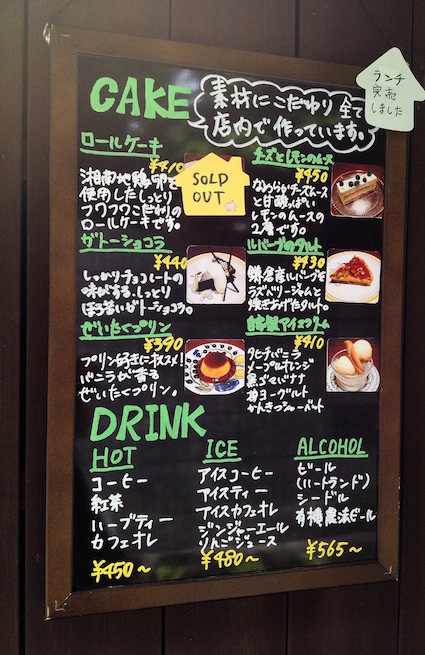 ランチ
完売
しました
CAKE
素材にこだわり 全て
店内で作っています。
ロールケーキ
¥410
SOLD
OUT
湘南地鶏卵を
使用したしっとり
フワフワこだわりの
ロールケーキです。
チーズとレモンのムース
¥450
なめらかチーズムース
と甘酸っぱい
レモンのムースの
2層です。
ガトーショコラ
¥440
しっかりチョコレートの
味がする、しっとり
ほろ苦いガトーショコラ。
ルバーブのタルト
¥430
鎌倉産ルバーブを
ラズベリージャムと
焼きあげたタルト。
ぜいたくプリン
¥390
プリン好きにオススメ!
バニラが香る
ぜいたくプリン。
自家製アイスクリーム
¥410
タヒチバニラ
メープルオレンジ
黒ゴマバナナ
苺ヨーグルト
かんきつシャーベット
DRINK
HOT
コーヒー
紅茶
ハーブティー
カフェオレ
¥450~
ICE
アイスコーヒー
アイスティー
アイスカフェオレ
ジンジャーエール
りんごジュース
¥480~
ALCOHOL
ビール
(ハートランド)
シードル
有機農法ビール
¥565~